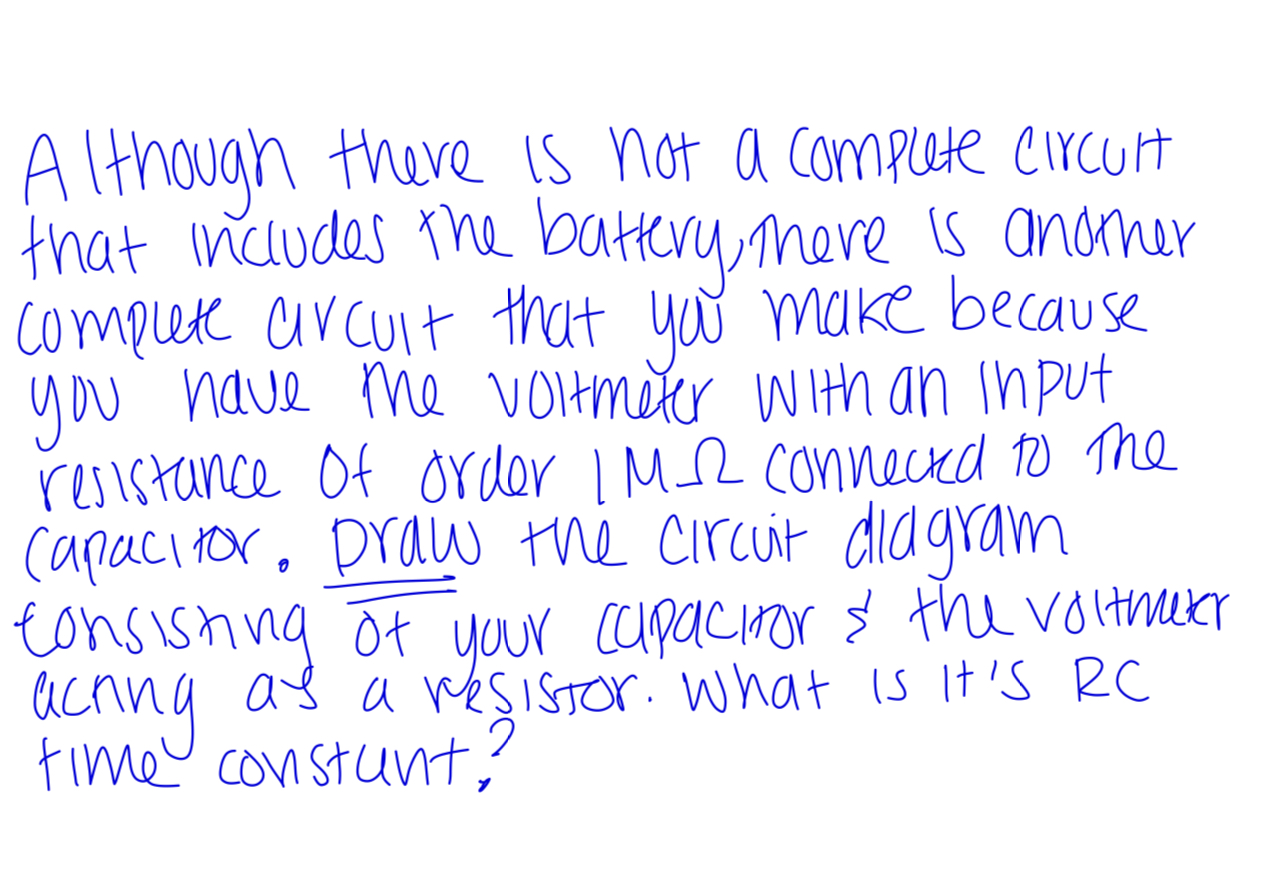 Although there is not a complete circuit
that includes the battery, there is another
complete circuit that you make because
you have the voltmeter with an input
resistance of order 1 MΩ connected to the
capacitor. Draw the circuit diagram
consisting of your capacitor & the voltmeter
acting as a resistor. What is it's RC
time constant?